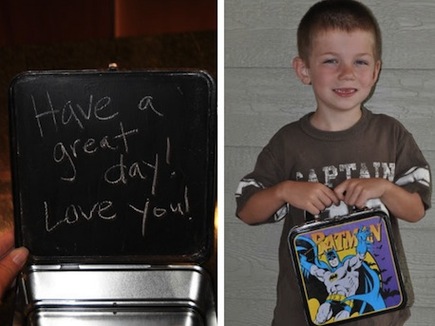 Have a
great
day!
Love you!
CAPTAIN
BATMAN